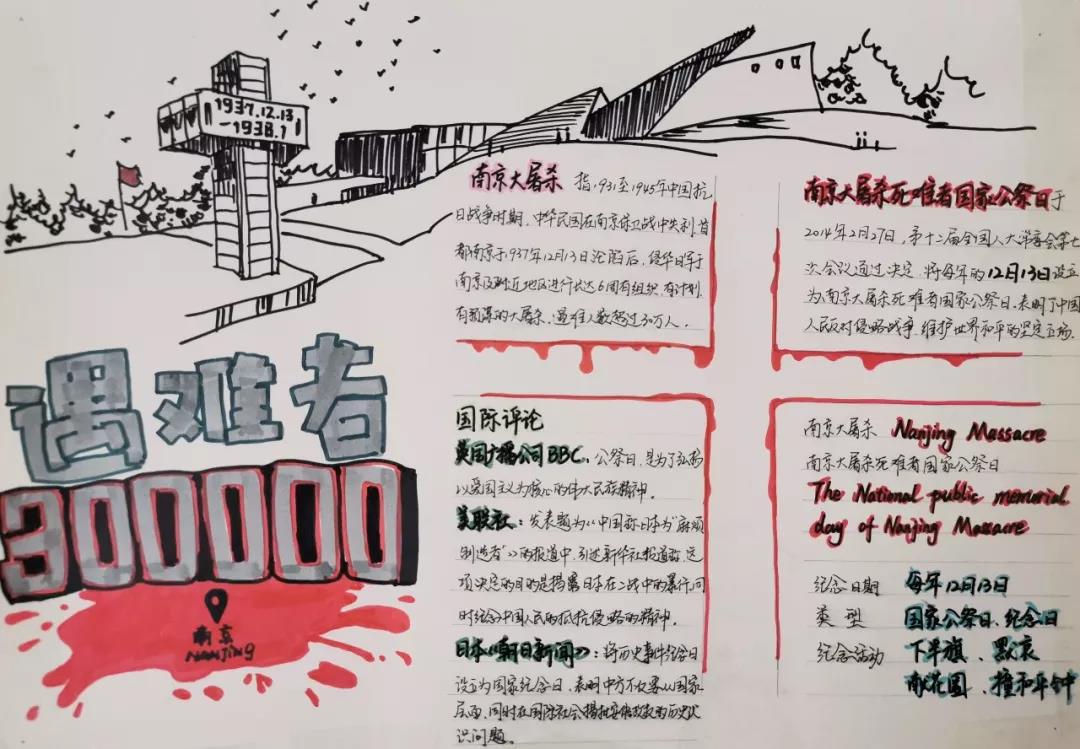 1937.12.13
-1938.1
遇难者
300000
南京
NANJING
南京大屠杀 指1931至1945年中国抗
日战争时期,中华民国在南京保卫战中失利,首
都南京于1937年12月13日沦陷后,侵华日军于
南京及附近地区进行长达6周有组织、有计划、
有预谋的大屠杀,遇难人数超过30万人。
南京大屠杀死难者国家公祭日于
2014年2月27日,第十二届全国人大常委会第七
次会议通过决定,将每年的12月13日设立
为南京大屠杀死难者国家公祭日,表明了中国
人民反对侵略战争、维护世界和平的坚定立场.
国际评论
英国广播公司BBC:公祭日,是为了弘扬
以爱国主义为核心的伟大民族精神.
美联社:发表题为《中国称日本为"麻烦
制造者"》的报道中,引述新华社报道说,这
项决定的目的是揭露日本在二战中的暴行,同
时纪念中国人民的抵抗侵略的精神.
日本《朝日新闻》:将历史事件纪念日
设立为国家纪念日,表明中方不仅要从国家
层面,同时在国际社会揭批安倍政权的历史认
识问题。
南京大屠杀 Nanjing Massacre
南京大屠杀死难者国家公祭日
The National public memorial
day of Nanjing Massacre
纪念日期 每年12月13日
类型 国家公祭日、纪念日
纪念活动 下半旗、默哀
献花圈、撞和平钟